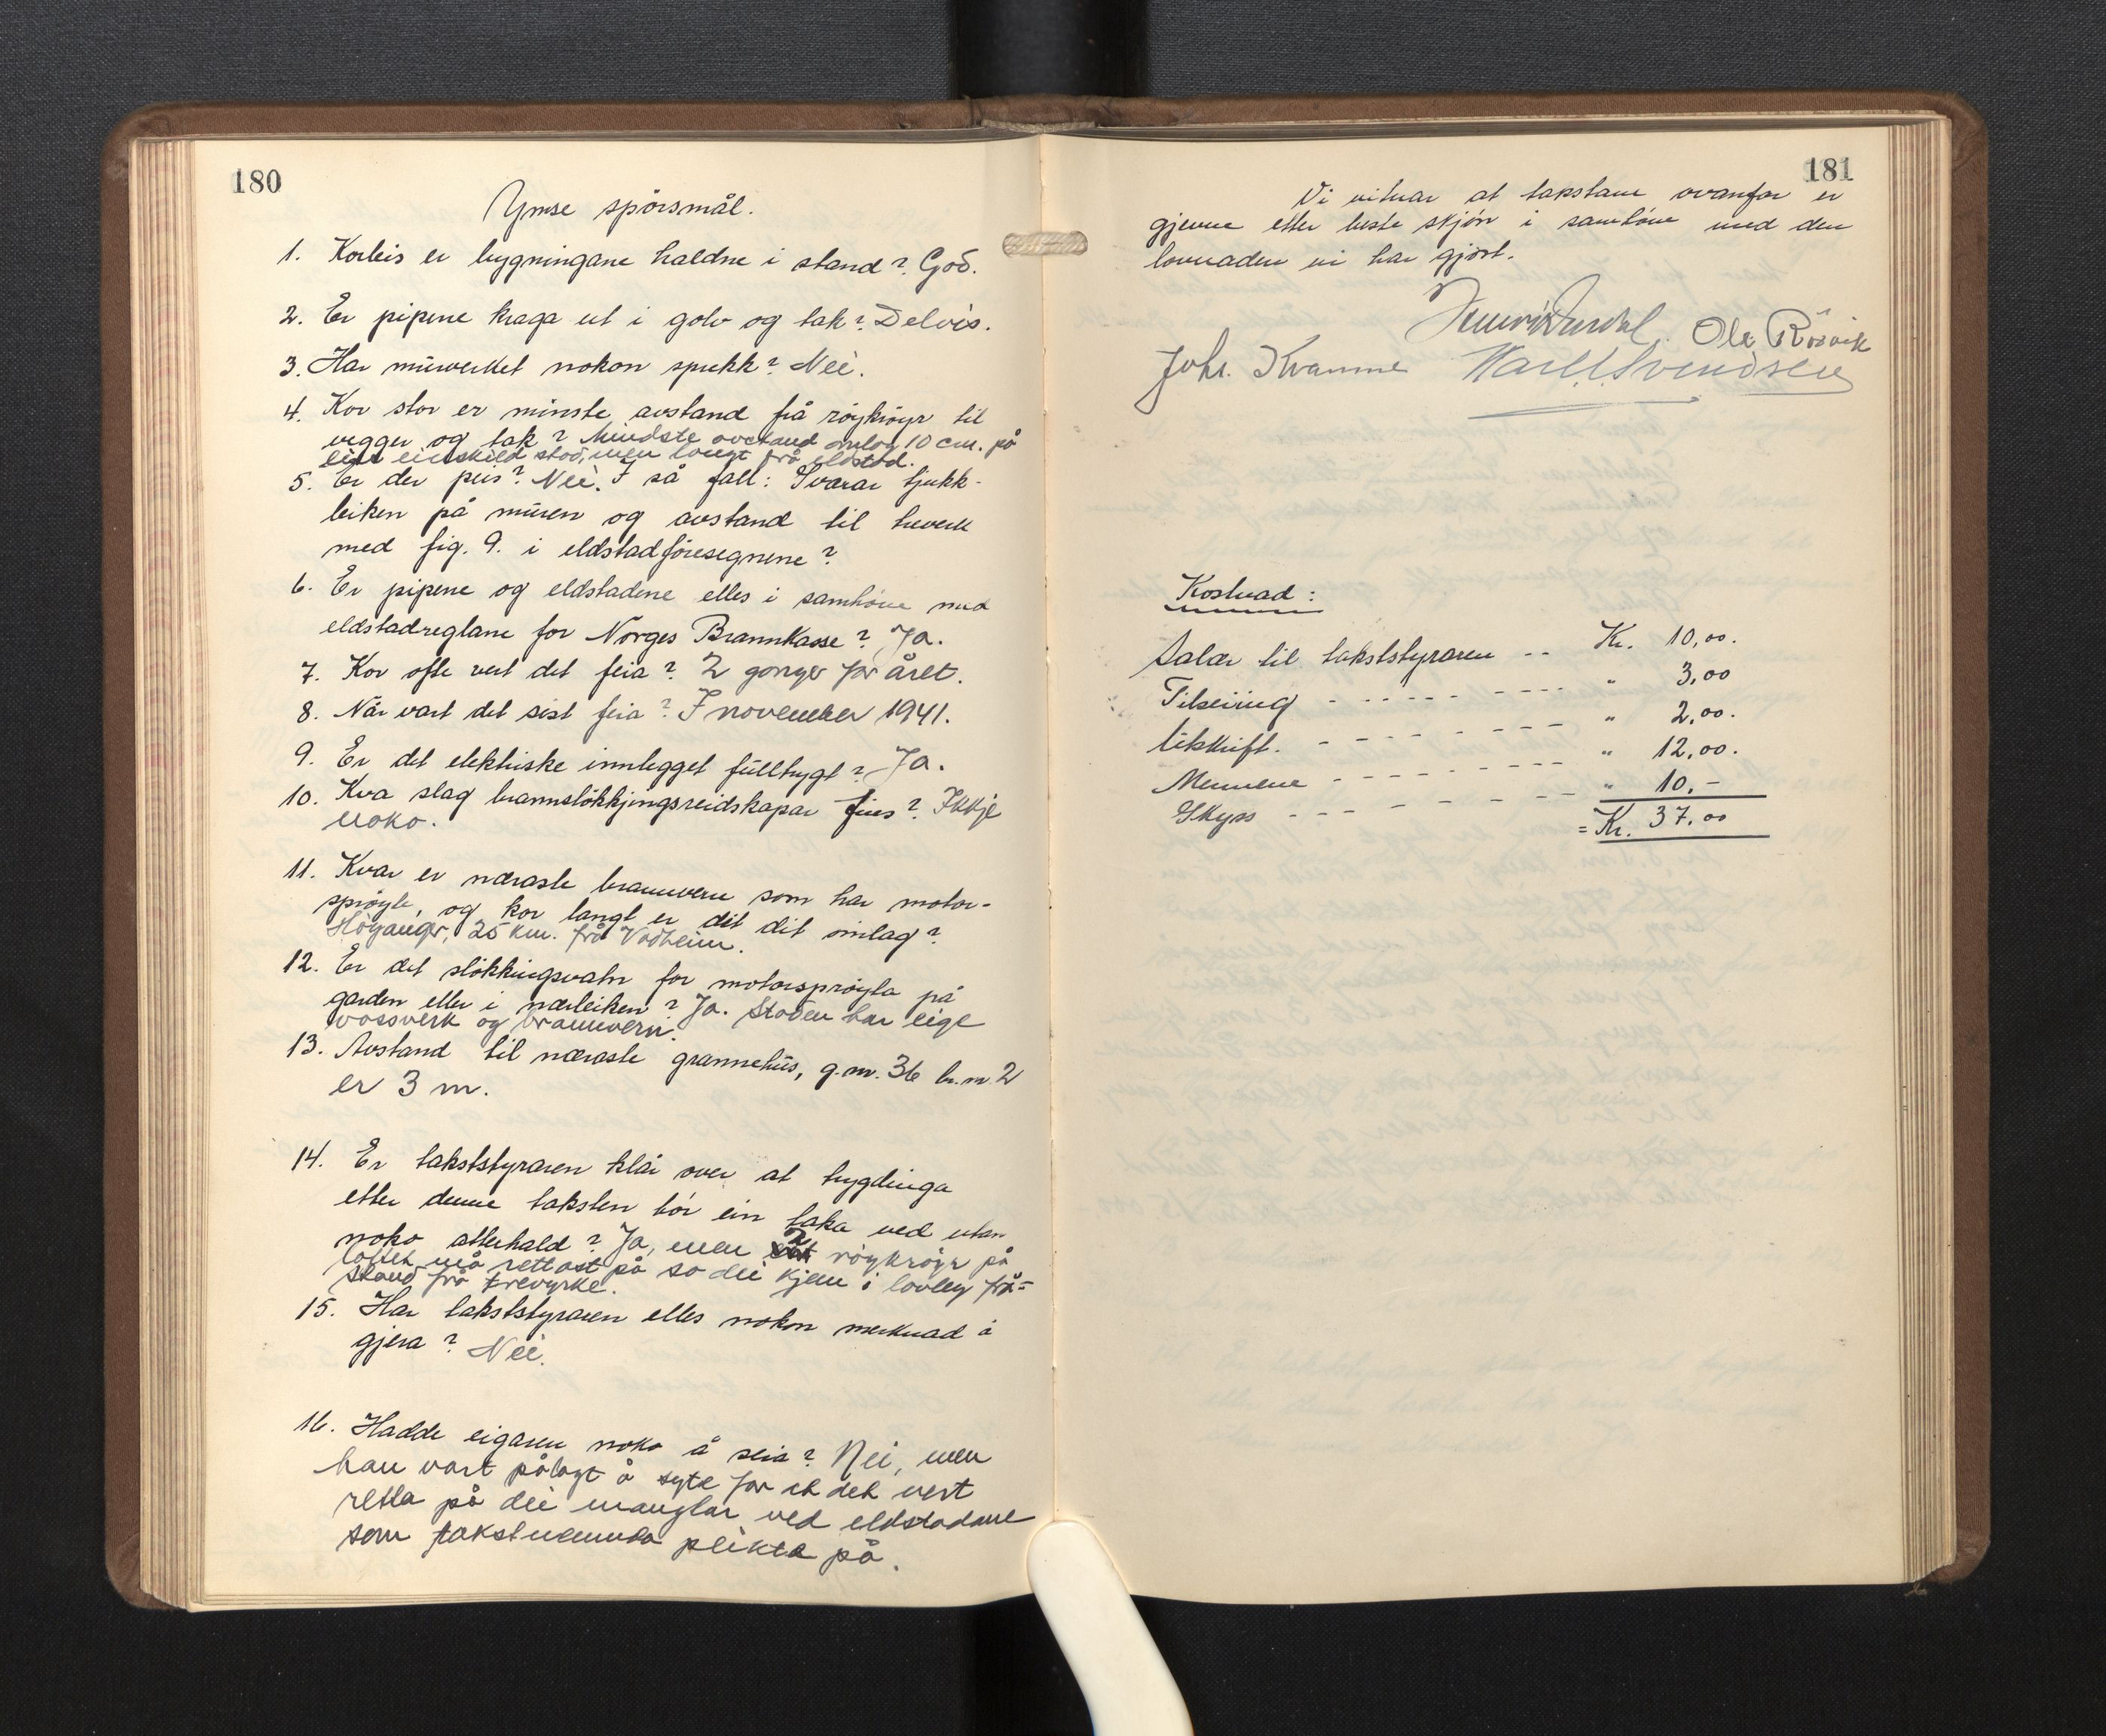 180
Ymse spörsmål.
1. Korleis er bygningane haldne i stand? God.
2. Er pipene kraga ut i golv og tak? Delvis.
3. Har murverket nokon sprekk? Nei.
4. Kor stor er minste avstand frå röykröyr til
vegger og tak? Mindste avstand omlag 10 cm. på
ein einskild stad, men langt frå eldstad.
5. Er der peis? Nei. I så fall: Svarar tjukk-
leiken på muren og avstand til treverk
med fig. 9. i eldstadföresegnene?
6. Er pipene og eldstadene elles i samhöve med
eldstadreglane for Norges Brannkasse? Ja.
7. Kor ofte vert det feia? 2 gonger for året.
8. Når vart det sist feia? I november 1941.
9. Er det elektriske innlegget fullbygt? Ja.
10. Kva slag brannslökkjingsreidskapar fins? Ikkje
noko.
11. Kvar er næraste brannvern som har motor-
spröyte, og kor langt er det dit omlag?
Höyanger, 25 km. frå Vadheim.
12. Er det slökkingsvatn for motorspröyta på
garden eller i nærleiken? Ja. Staden har eige
vassverk og brannvern.
13. Avstand til næraste grannehus, g.nr. 36 br.nr. 2
er 3 m.
14. Er takststyraren klår over at bygdinga
etter denne taksten bör ein taka ved utan
noko atterhald? Ja, men 2 röykröyr på
loftet må rettast på so dei kjem i lovleg frå-
stand frå trevyrke.
15. Har takststyraren elles nokon merknad å
gjera? Nei.
16. Hadde eigaren noko å seia? Nei, men
han vart pålagt å syte for at det vert
retta på dei manglar ved eldstadane
som takstnemnda peikta på.
181
Vi vitnar at takstane ovanfor er
gjevne etter beste skjön i samhöve med den
lovnaden vi har gjort.
Ole Rösvik
Joh. Kvamme Karl Svendsen
Kostnad:
Salær til takststyraren .. Kr. 10,00.
Tilseiing - - - - - - - - - " 3,00
Utskrift. - - - - - - - - - " 2,00.
Mennene - - - - - - - - - " 12,00.
Skyss - - - - - - - - - " 10,-
= Kr. 37.00